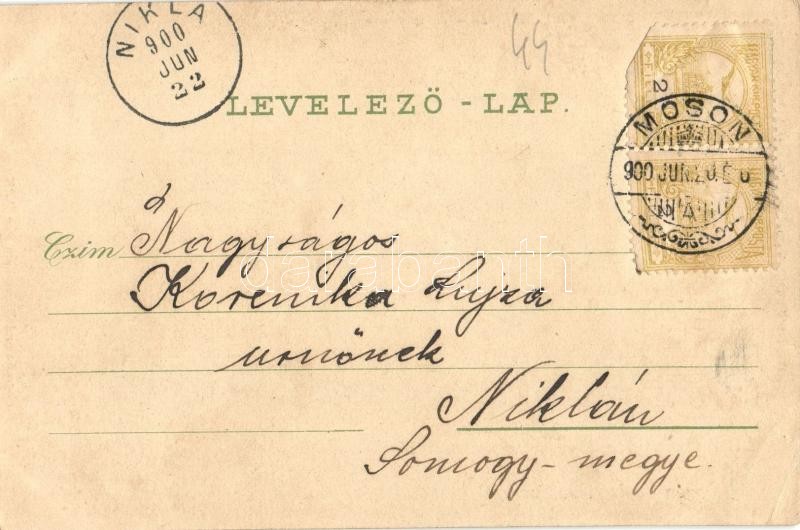 NIKLA
900
JUN
22
44
LEVELEZŐ-LAP.
MOSON
900 JUN. 20. É 6
Ő
Czim Nagyságos
Korenika Lujza
urnőnek
Niklán
Somogy-megye.
darabanth